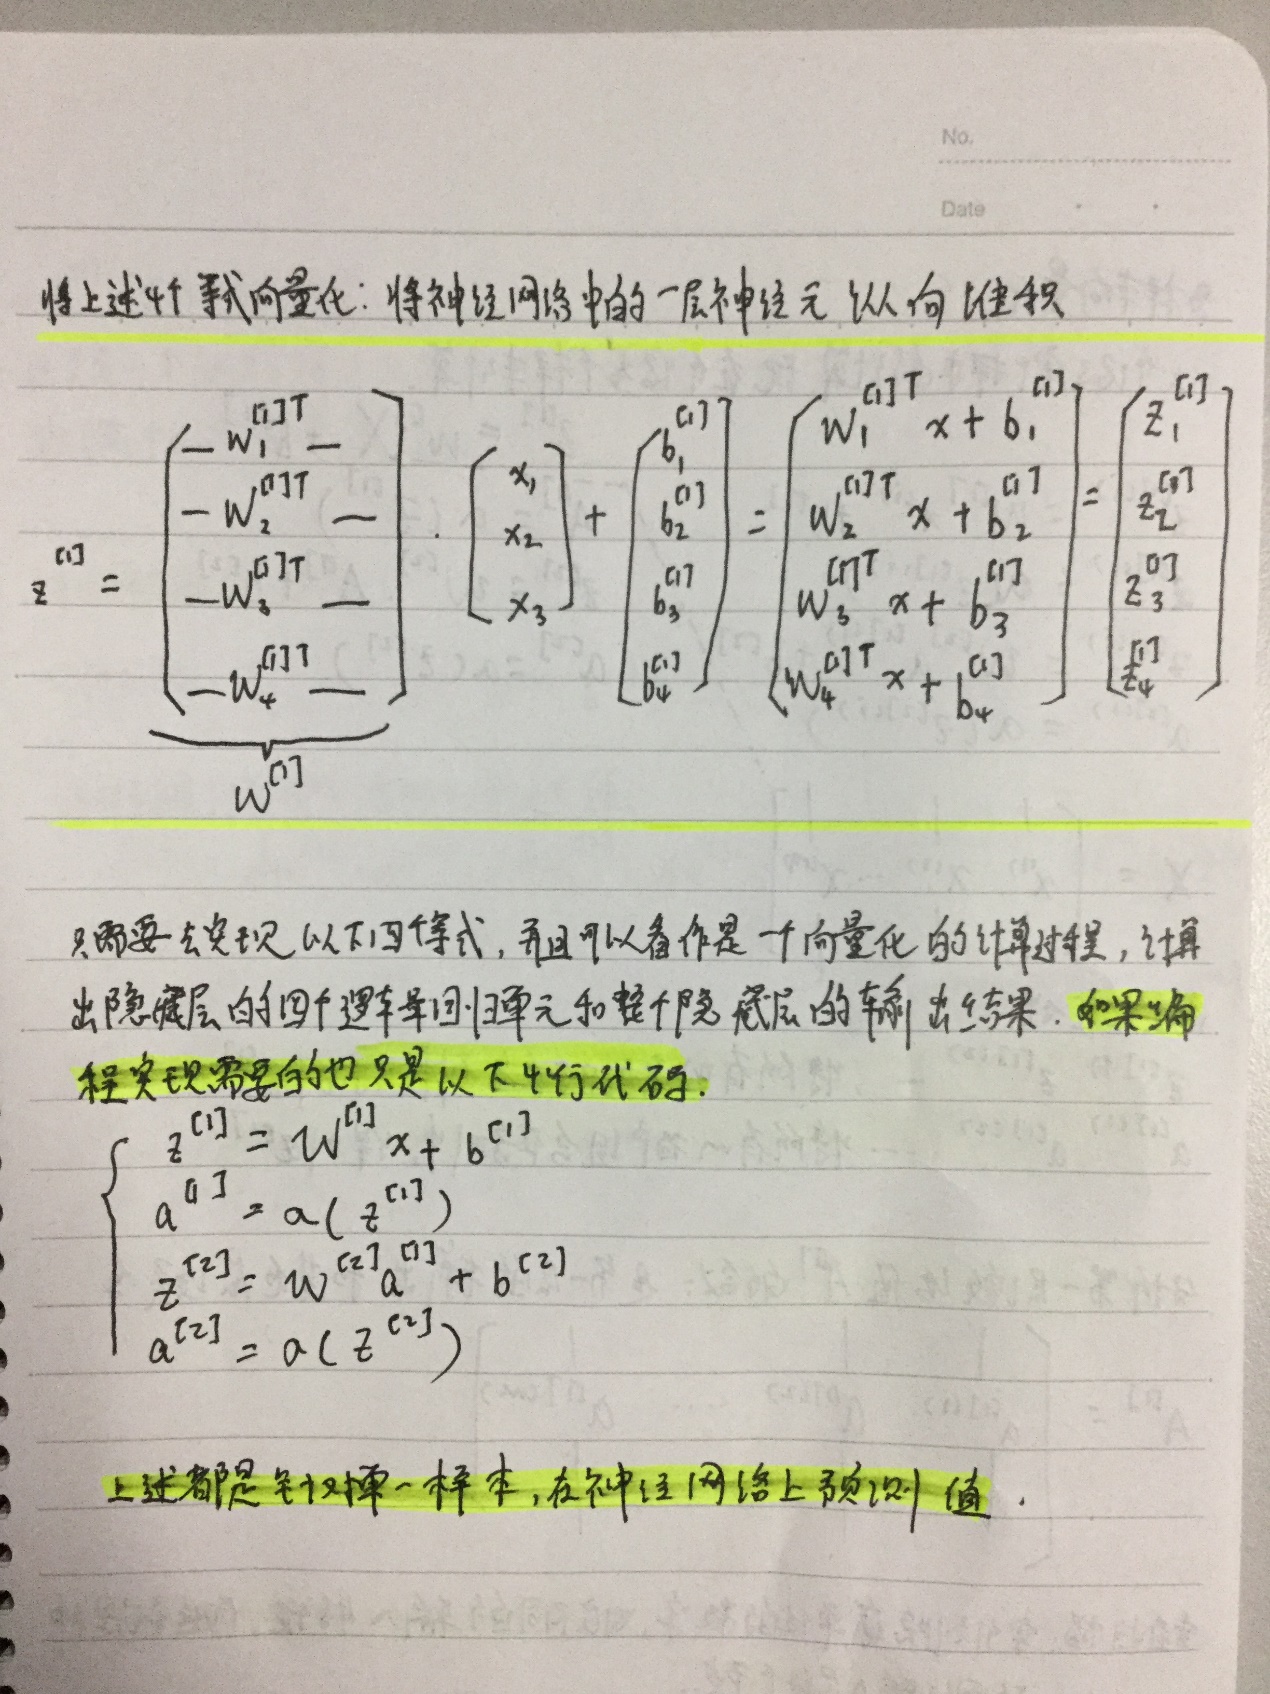 No.
Date
将上述4个等式向量化:将神经网络中的一层神经元纵向堆积
z^[1] = [ — w₁^[1]T — ; — w₂^[1]T — ; — w₃^[1]T — ; — w₄^[1]T — ] · [ x₁ ; x₂ ; x₃ ] + [ b₁^[1] ; b₂^[1] ; b₃^[1] ; b₄^[1] ] = [ w₁^[1]T x + b₁^[1] ; w₂^[1]T x + b₂^[1] ; w₃^[1]T x + b₃^[1] ; w₄^[1]T x + b₄^[1] ] = [ z₁^[1] ; z₂^[1] ; z₃^[1] ; z₄^[1] ]
W^[1]
只需要去实现以下四个等式,并且可以看作是一个向量化的计算过程,计算
出隐藏层的四个逻辑回归单元和整个隐藏层的输出结果.如果编
程实现需要的也只是以下4行代码.
z^[1] = W^[1] x + b^[1]
a^[1] = a(z^[1])
z^[2] = W^[2] a^[1] + b^[2]
a^[2] = a(z^[2])
上述都是针对单一样本,在神经网络上预测值.